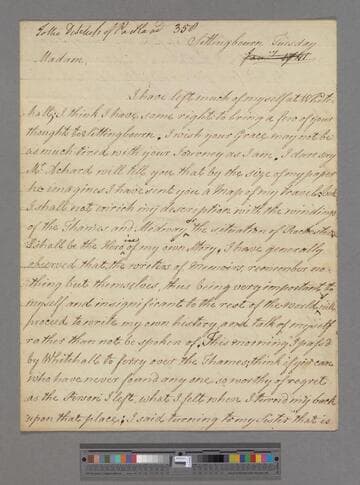 To the Dutchess of Portland 350
Sittingbourn Tuesday
Madam,
I have left much of myself at White
Hall; I think I have some right to bring a few of your
thoughts to Sittingbourn. I wish your Grace may not be
as much tired with your Journey as I am. I dare say
Mr. Achard will tell you that by the size of my paper
he imagines I have sent you a Map of my travels; but
I shall not enrich my description with the windings
of the Thames and Medway, or the situation of Rochester
I shall be the Hero in my own Story. I have generally
observed that the writers of Memoirs, remember no-
thing but themselves, thus being very important to
myself and insignificant to the rest of the world, will
proceed to write my own history, and talk of myself
rather than not be spoken of. This morning I pass'd
by Whitehall to ferry over the Thames; think if you can
who have never found any one so worthy of regret
as the Person I left, what I felt when I turn'd my back
upon that place; I said turning to my Sister that is